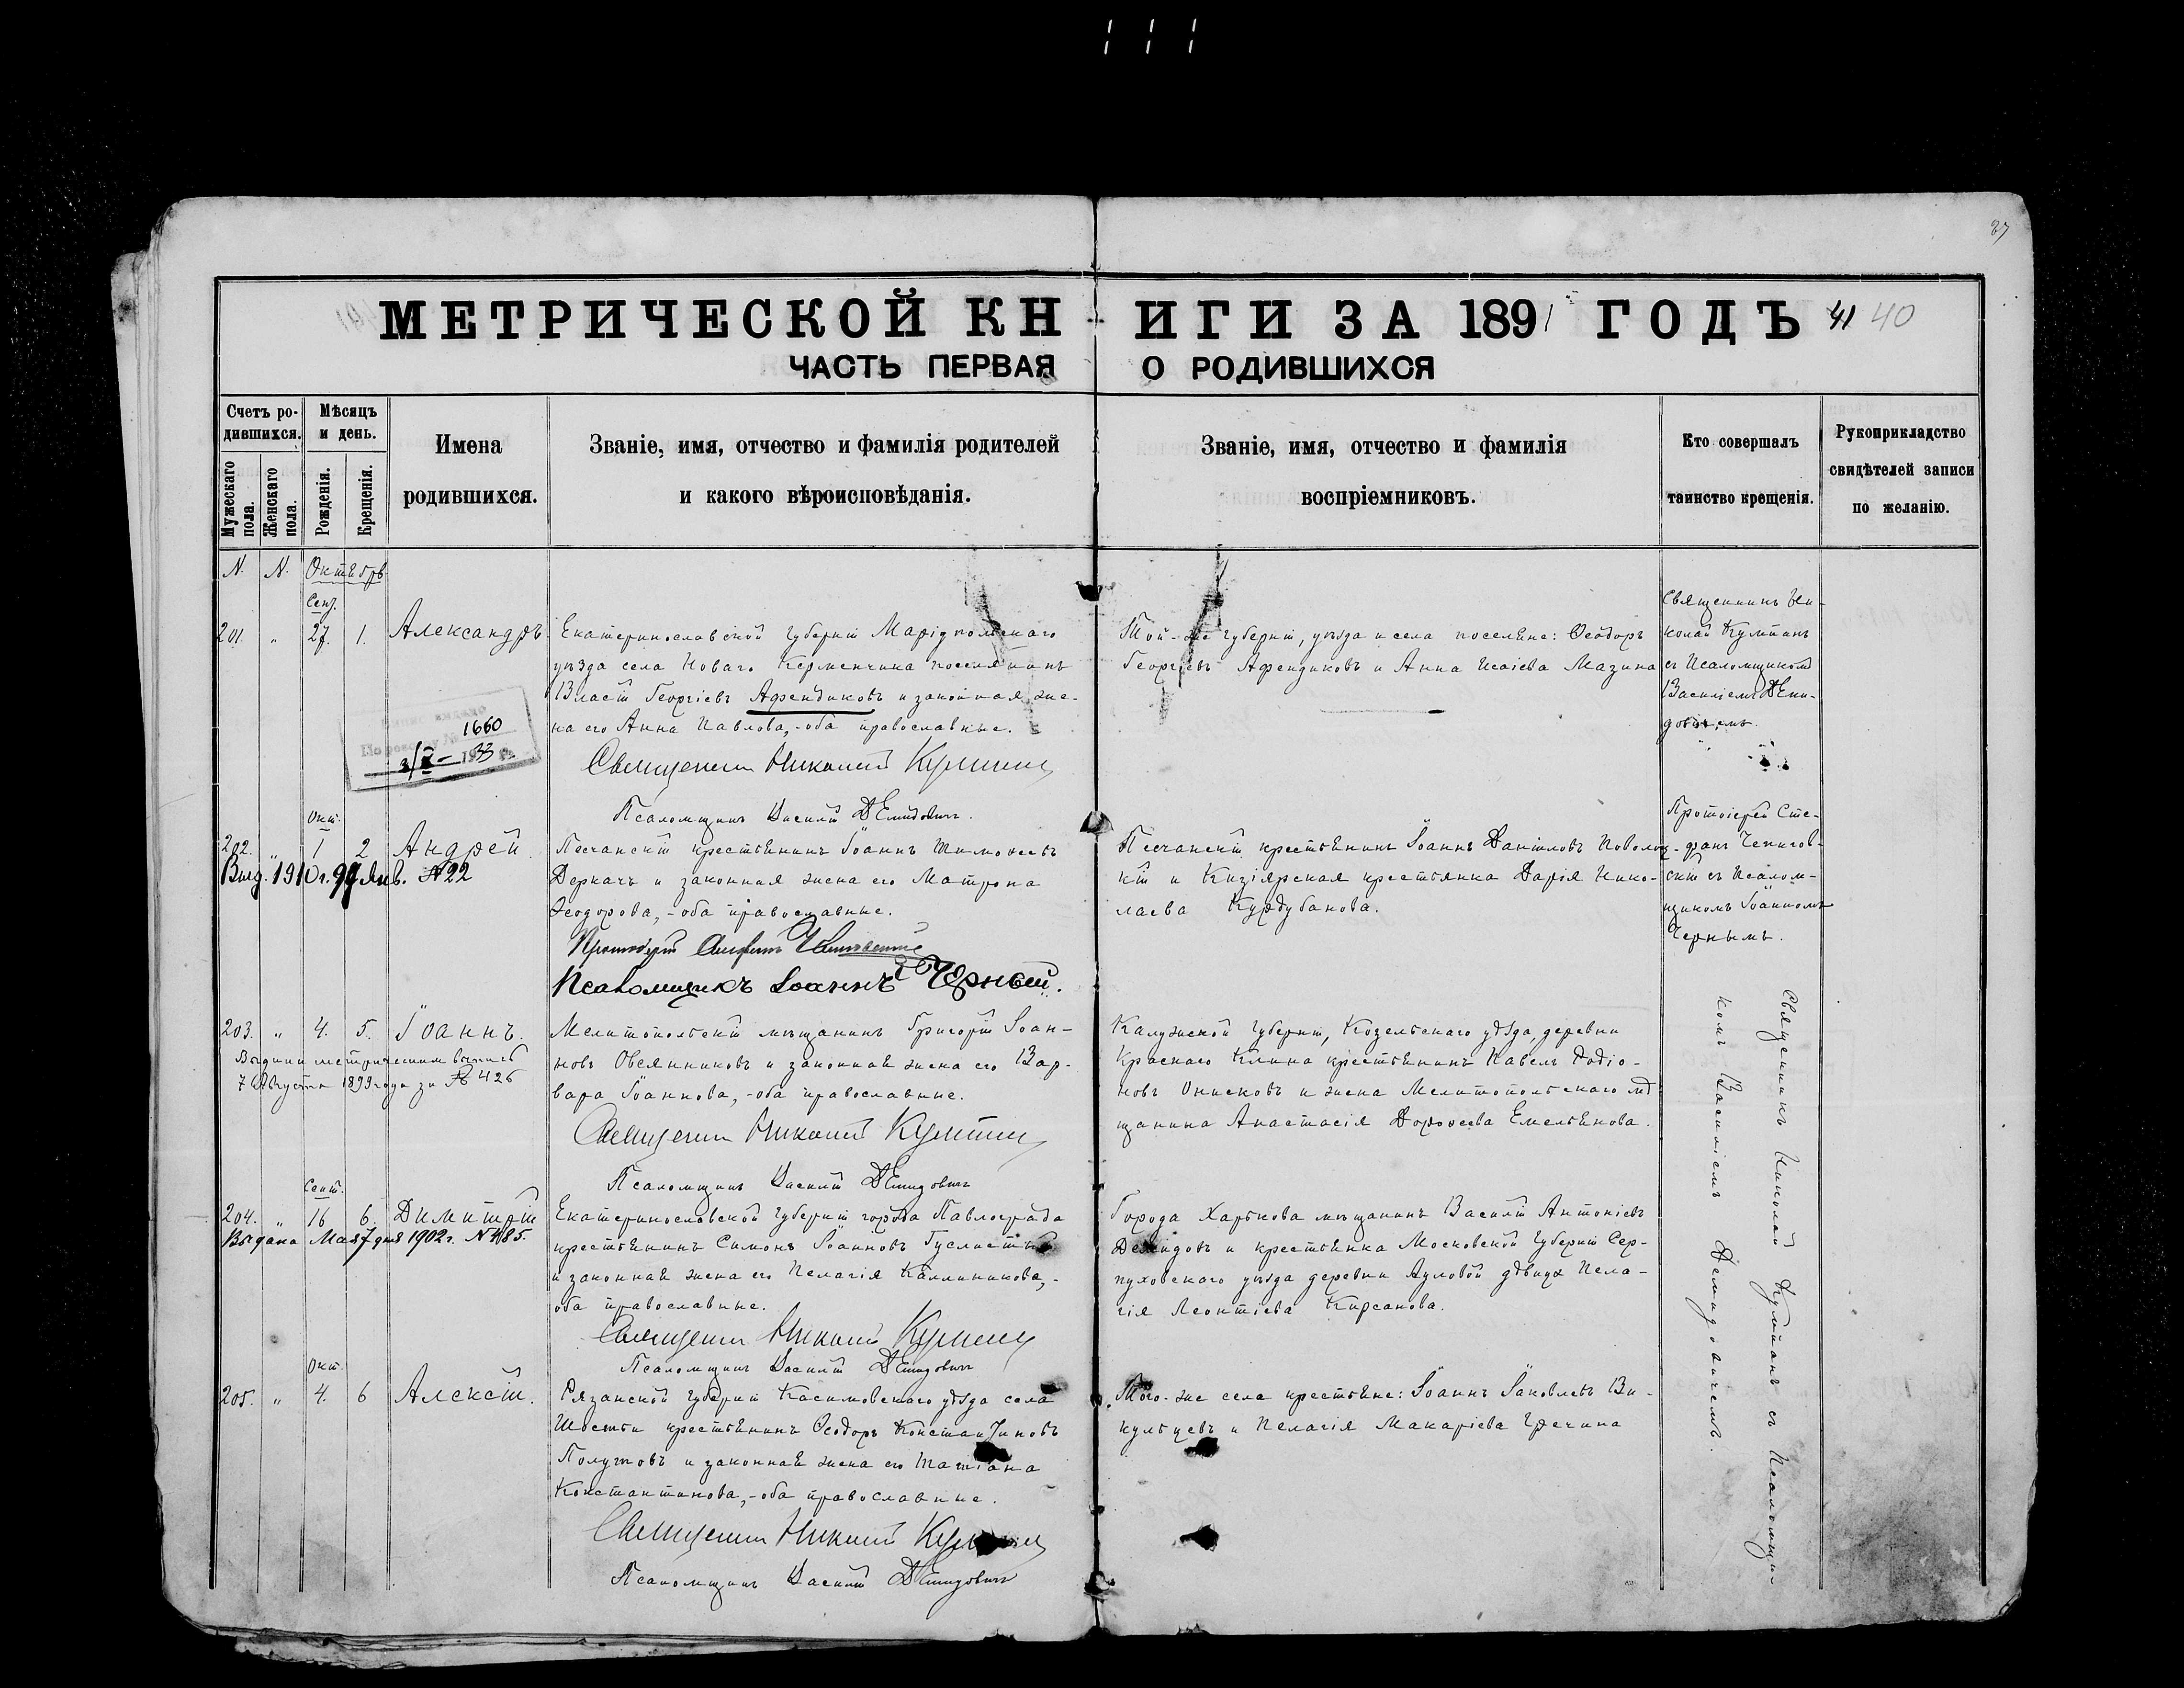 37
МЕТРИЧЕСКОЙ КНИГИ ЗА 1891 ГОДЪ 41 40
ЧАСТЬ ПЕРВАЯ О РОДИВШИХСЯ
Счетъ ро-
дившихся.
Мужескаго пола.
Женскаго пола.
Мѣсяцъ
и день.
Рожденія.
Крещенія.
Имена
родившихся.
Званіе, имя, отчество и фамилія родителей
и какого вѣроисповѣданія.
Званіе, имя, отчество и фамилія
воспріемниковъ.
Кто совершалъ
таинство крещенія.
Рукоприкладство
свидѣтелей записи
по желанію.
N. N. Октябрь
Сент.
201 " 27. 1. Александръ
Екатеринославской губерніи Маріупольскаго
уѣзда села Новаго Керменчика поселянинъ
Власій Георгіевъ Афендиковъ и законная же-
на его Анна Павлова,-оба православные.
Священникъ Николай Кулпинъ
Псаломщикъ Василій Демидовичъ.
Той-же губерніи, уѣзда и села поселяне: Ѳеодоръ
Георгіевъ Афендиковъ и Анна Исаіева Мазина
Священникъ Ни-
колай Кулпинъ
съ Псаломщикомъ
Василіемъ Деми-
довичемъ.
1660
1933
Окт.
202. " 1 2 Андрей.
Выд. 1910 г. Янв. №22
Песчанскій крестьянинъ Іоаннъ Тимоѳеевъ
Деркачъ и законная жена его Матрона
Ѳеодорова,-оба православные.
Протоіерей Стефанъ
Псаломщикъ Іоаннъ Черный.
Песчанскій крестьянинъ Іоаннъ Даніиловъ Поволоц-
кій и Кизіярская крестьянка Дарія Нико-
лаева Курдубанова.
Протоіерей Сте-
фанъ
скій съ Псалом-
щикомъ Іоанномъ
Чернымъ.
203. " 4. 5. Іоаннъ.
Выдана метрическая выпись
7 Августа 1899 года за № 426
Мелитопольскій мѣщанинъ Григорій Іоан-
новъ Овсянниковъ и законная жена его Вар-
вара Іоаннова,-оба православные.
Священникъ Николай Кулпинъ
Псаломщикъ Василій Демидовичъ
Калужской губерніи, Козельскаго уѣзда, деревни
Краснаго Клина крестьянинъ Павелъ Родіо-
новъ Онисковъ и жена Мелитопольскаго мѣ-
щанина Анастасія Дороѳеева Емельянова.
Сент.
204. " 16 6. Димитрій
Выдана Мая 7 дня 1902 г. N 485.
Екатеринославской губерніи города Павлограда
крестьянинъ Симонъ Іоанновъ Гуслистый
и законная жена его Пелагія Каллиникова,-
оба православные.
Священникъ Николай Кулпинъ
Псаломщикъ Василій Демидовичъ
Города Харькова мѣщанинъ Василій Антоніевъ
Демидовъ и крестьянка Московской губерніи Сер-
пуховскаго уѣзда деревни Ауловой дѣвица Пела-
гія Леонтіева Кирсанова.
Окт.
205. " 4. 6 Алексій.
Рязанской губерніи Касимовскаго уѣзда села
Шостьи крестьянинъ Ѳеодоръ Константиновъ
Полутовъ и законная жена его Татіана
Константинова,-оба православные.
Священникъ Николай Кулпинъ
Псаломщикъ Василій Демидовичъ
Того-же села крестьяне: Іоаннъ Іаковлевъ Ви-
кульцевъ и Пелагія Макаріева Гречина
Священникъ Николай Кулпинъ съ Псаломщи-
комъ Василіемъ Демидовичемъ.